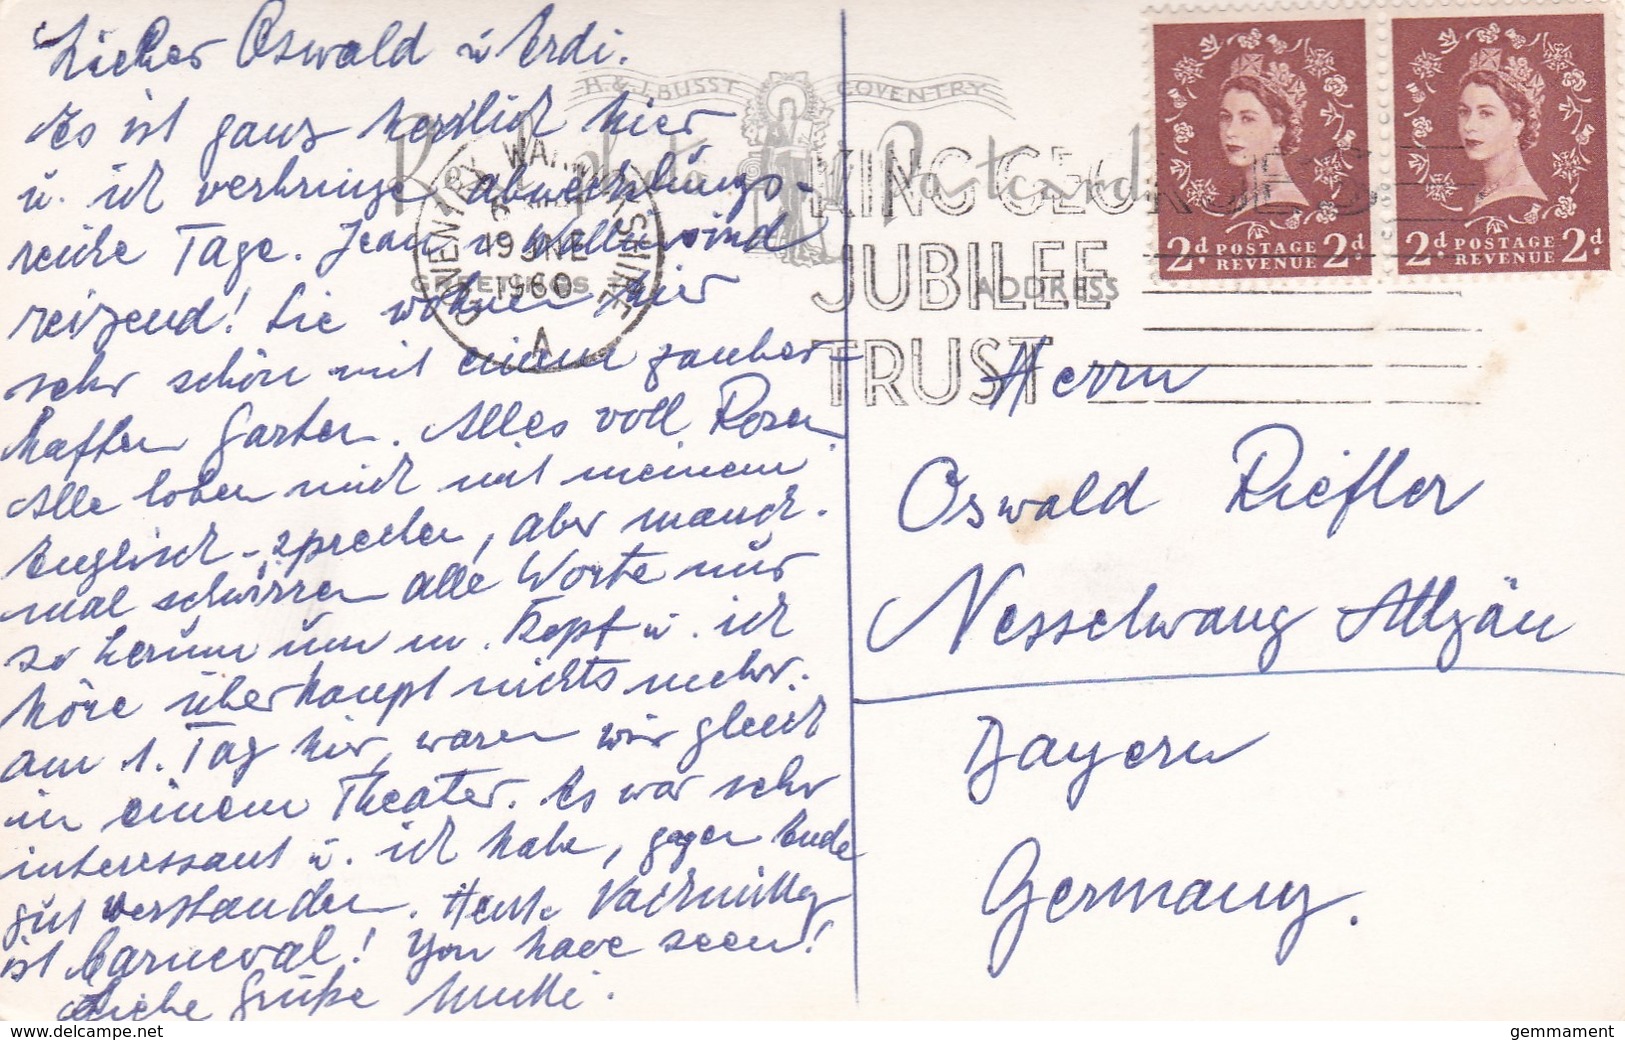 Lieber Oswald u Erdi.
Es ist ganz herrlich hier
u. ich verbringe abwechslungs-
reiche Tage. Jean u Walle sind
reizend! Sie wohnen hier
sehr schön mit einem zauber-
haften Garten. Alles voll Rosen.
Alle loben mich mit meinem
Englisch-sprechen, aber manch-
mal schwirren alle Worte nur
so herum um m. Kopf u. ich
höre überhaupt nichts mehr.
am 1. Tag hier, waren wir gleich
in einem Theater. Es war sehr
interessant u. ich habe, gegen Ende
gut verstanden. Heute Nachmittag
ist Carneval! You have seen!
Liebe Grüße Mutti.
H. & J. BUSST COVENTRY
Real photo Postcard
GREETINGS
ADDRESS
19 JNE
1960
A
KING GEORGE
JUBILEE
TRUST
2d POSTAGE REVENUE 2d
2d POSTAGE REVENUE 2d
Herrn
Oswald Riefler
Nesselwang Allgäu
Bayern
Germany.
gemmament